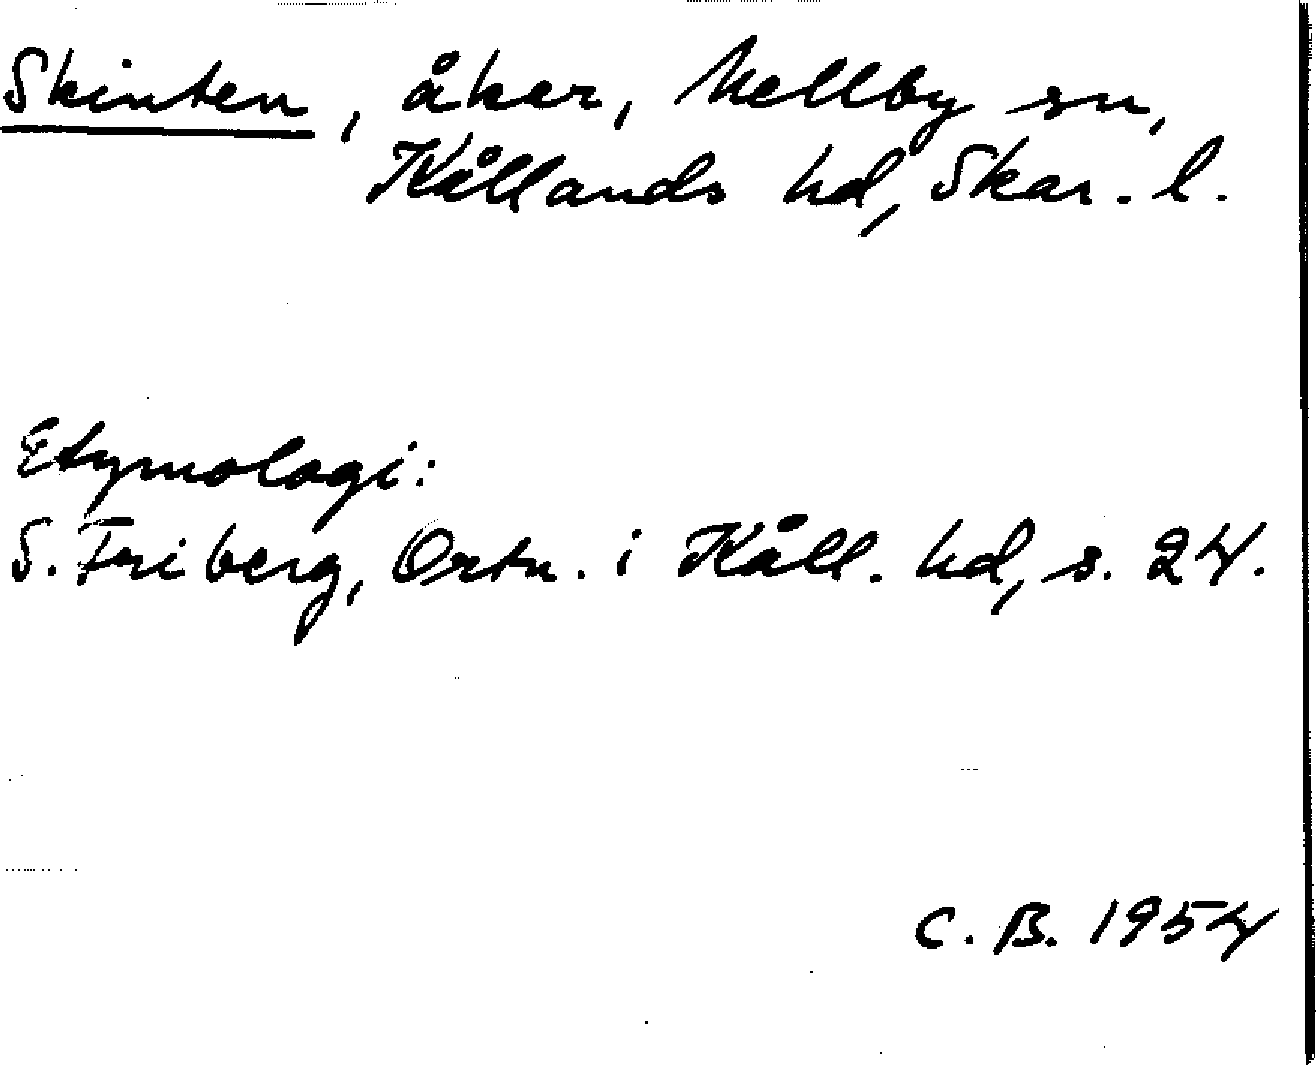 Skinten, åker, Mellby sn,
Kållands hd, Skar. l.
Etymologi:
S. Friberg, Ortn. i Kåll. hd, s. 24.
C. B. 1954